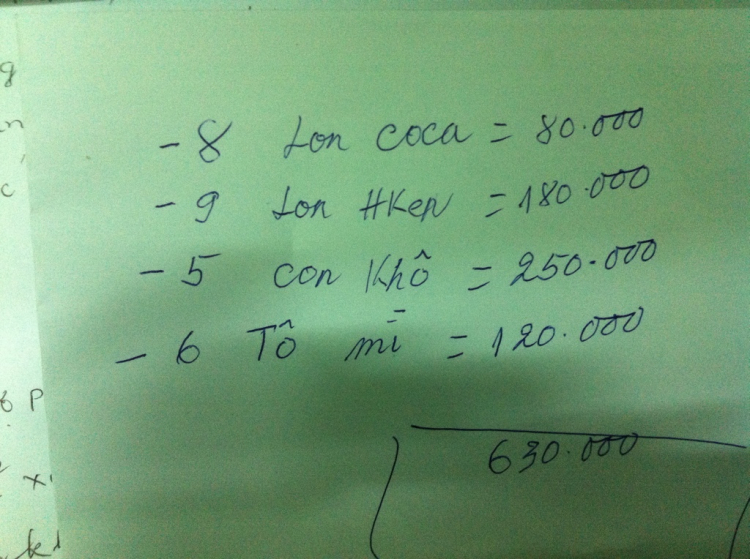 - 8 Lon coca = 80.000
- 9 Lon HKen = 180.000
- 5 con Khô = 250.000
- 6 Tô mì = 120.000
630.000